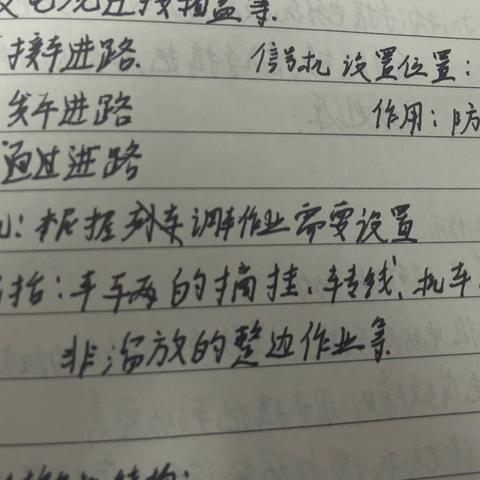 电流过接箱盒等.
接车进路. 信号机 设置位置:
发车进路 作用: 防
通过进路
机: 根据列车调车作业需要设置
包括: 车车辆的摘挂、转线、机车
非溜放的整边作业等
结构: